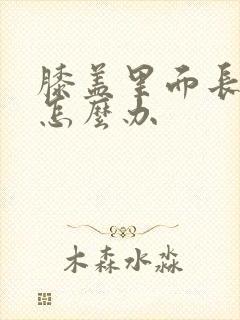 膝盖里而長
怎麼办
木森水淼